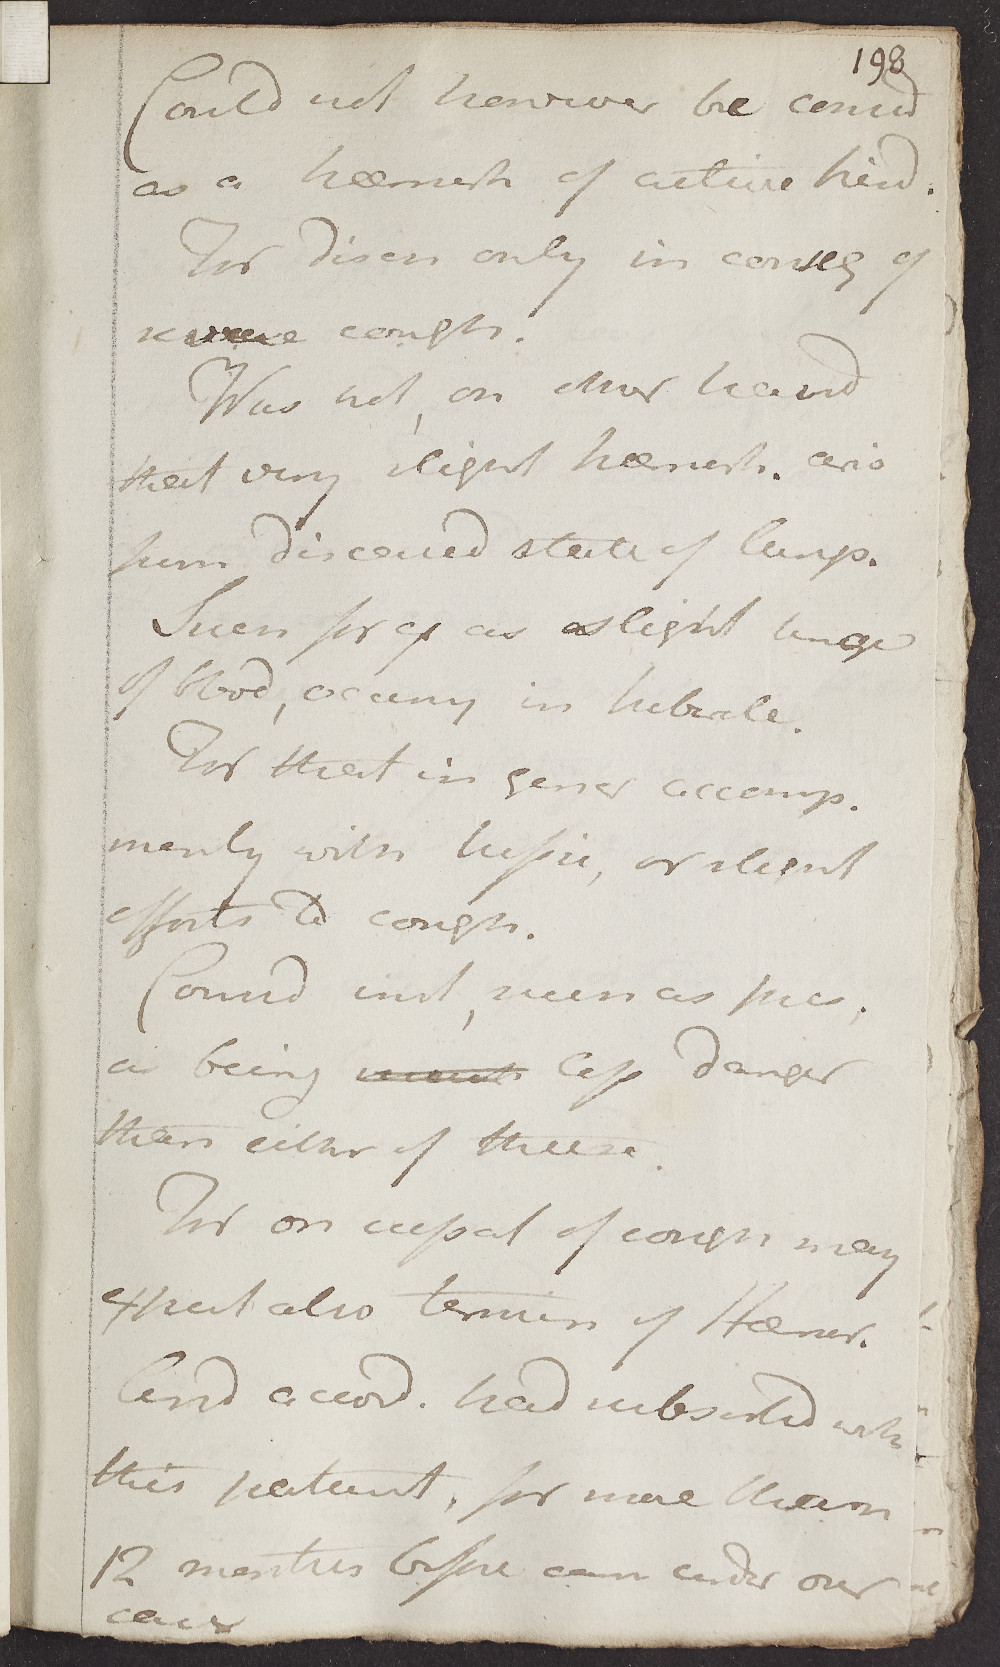 198
Could not however be consid
as a hæmorh of active kind.
For discn only in conseq of
severe cough.
Was not, on other hand
that very slight hæmorh. aris
from diseased state of lungs.
Such for ex as slight tinge
of blood, occurry in
For that in gener accomp.
merely with tussis, or slight
efforts to cough.
Consid inst, seen as prec,
as being less danger
than either of these.
For on repeat of cough may
expect also termin of Hæmor.
And accord. had subsisted with
this patient, for more than
12 months before cam under our
care